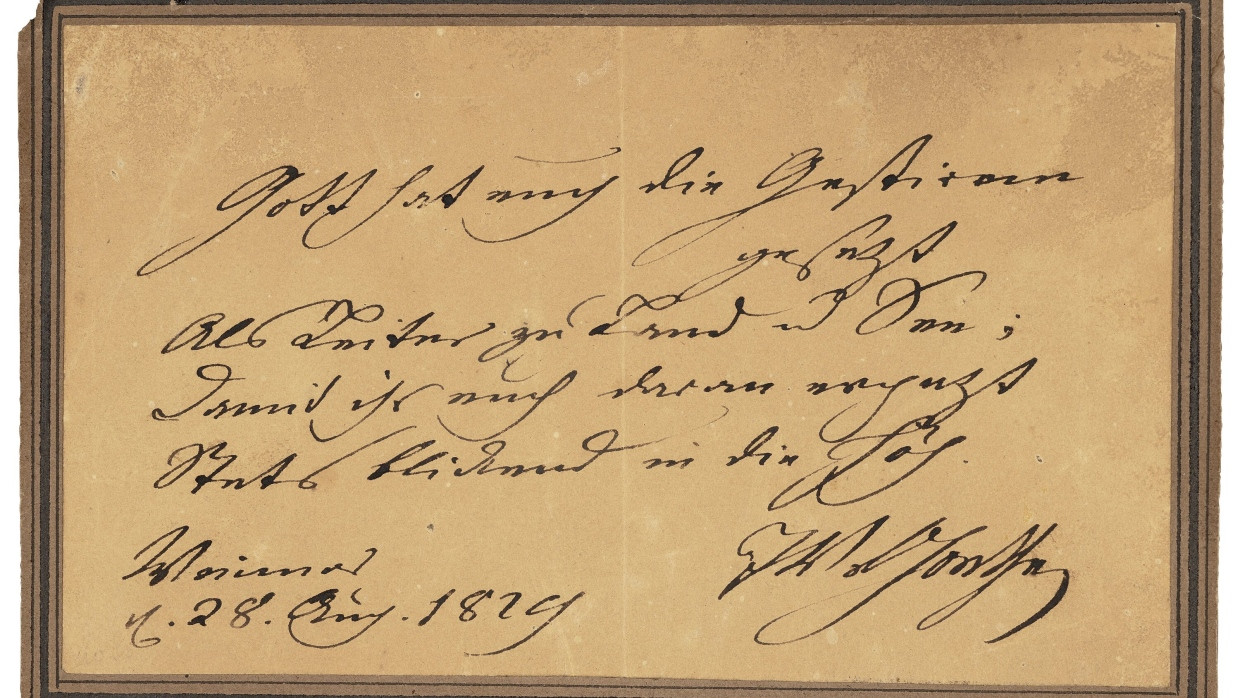 Gott hat euch die Gestirne
gesetzt
Als Leiter zu Land u See;
Damit ihr euch daran ergetzt
Stets blickend in die Höh.
Weimar
d. 28. Aug. 1829
JWvGoethe